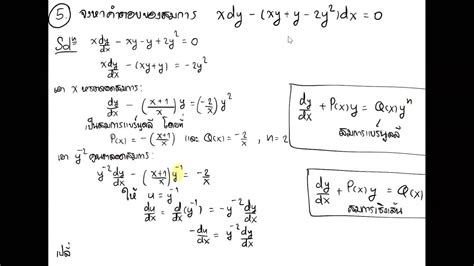 5. จงหาคำตอบของสมการ xdy - (xy + y - 2y²)dx = 0
Solⁿ x dy/dx - xy - y + 2y² = 0
x dy/dx - (xy+y) = -2y²
เอา x หารตลอดสมการ :
dy/dx - ((x+1)/x) y = (-2/x) y²
เป็นสมการแบร์นูลลี โดยที่
P(x) = -((x+1)/x) และ Q(x) = -2/x , n = 2
เอา y⁻² คูณตลอดสมการ :
y⁻² dy/dx - ((x+1)/x) y⁻¹ = -2/x
ให้ u = y⁻¹
du/dx = d/dx (y⁻¹) = -y⁻² dy/dx
-du/dx = y⁻² dy/dx
เปลี่
dy/dx + P(x)y = Q(x)yⁿ
สมการแบร์นูลลี
dy/dx + P(x)y = Q(x)
สมการเชิงเส้น